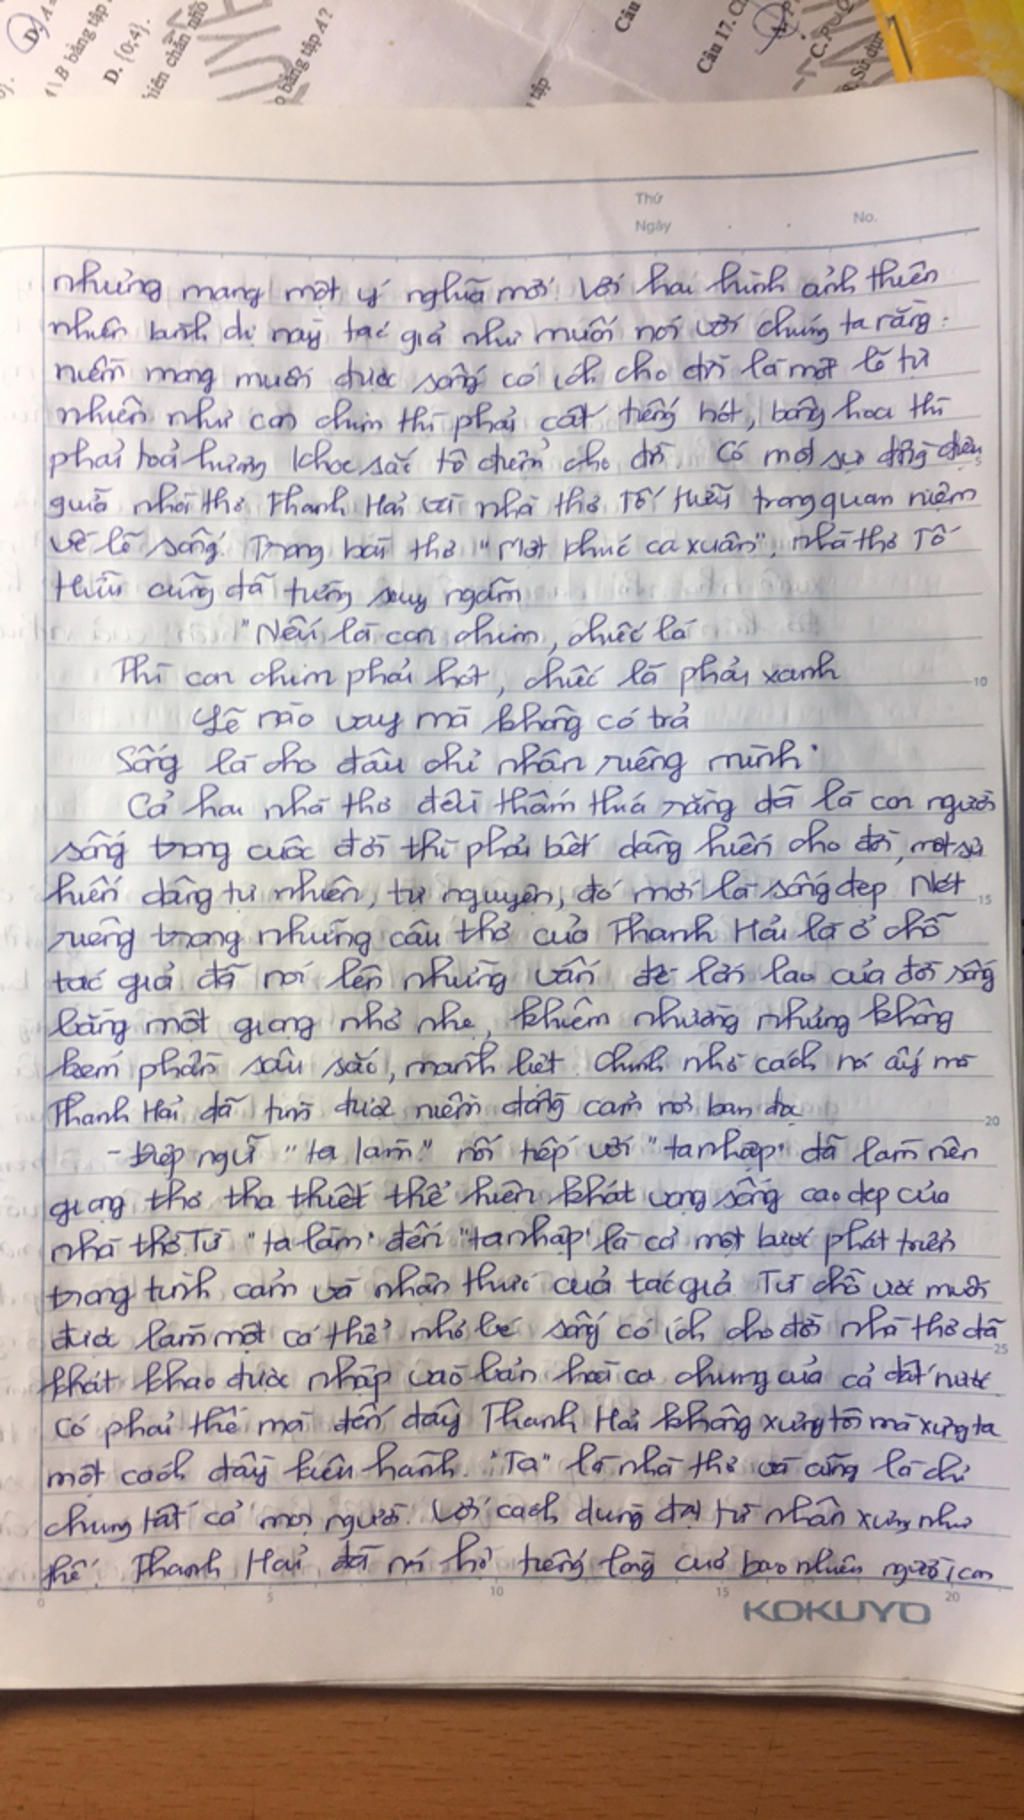 D. A =
A \ B bằng tập
D. {0;4}.
hiên chẵn nhỏ
bằng tập A ?
tập
Câu
Câu 17. C
Thứ
Ngày
No.
nhưng mang một ý nghĩa mới. Với hai hình ảnh thiên
nhiên bình dị này tác giả như muốn nói với chúng ta rằng:
niềm mong muốn được sống có ích cho đời là một lẽ tự
nhiên như con chim thì phải cất tiếng hót, bông hoa thì
phải toả hương khoe sắc tô điểm cho đời. Có một sự đồng điệu
giữa nhà thơ Thanh Hải với nhà thơ Tố Hữu trong quan niệm
về lẽ sống. Trong bài thơ "Một khúc ca xuân", nhà thơ Tố
Hữu cũng đã từng suy ngẫm
"Nếu là con chim, chiếc lá
Thì con chim phải hót, chiếc lá phải xanh
Lẽ nào vay mà không có trả
Sống là cho đâu chỉ nhận riêng mình"
Cả hai nhà thơ đều thấm thía rằng đã là con người
sống trong cuộc đời thì phải biết dâng hiến cho đời, một sự
hiến dâng tự nhiên, tự nguyện, đó mới là sống đẹp. Nét
riêng trong những câu thơ của Thanh Hải là ở chỗ
tác giả đã nói lên những vấn đề lớn lao của đời sống
bằng một giọng nhỏ nhẹ, khiêm nhường nhưng không
kém phần sâu sắc, mãnh liệt. Chính nhờ cách nói ấy mà
Thanh Hải đã tìm được niềm đồng cảm nơi bạn đọc
- Điệp ngữ "ta làm" nối tiếp với "ta nhập" đã làm nên
giọng thơ tha thiết thể hiện khát vọng sống cao đẹp của
nhà thơ. Từ "ta làm" đến "ta nhập" là cả một bước phát triển
trong tình cảm và nhận thức của tác giả. Từ chỗ ước muốn
được làm một cá thể nhỏ bé sống có ích cho đời nhà thơ đã
khát khao được nhập vào bản hoà ca chung của cả đất nước.
Có phải thế mà đến đây Thanh Hải không xưng tôi mà xưng ta
một cách đầy kiêu hãnh. "Ta" là nhà thơ và cũng là chỉ
chung tất cả mọi người. Với cách dùng đại từ nhân xưng như
thế. Thanh Hải đã nói hộ tiếng lòng của bao nhiêu người, con
5
10
15
20
25
0 5 10 15 20
KOKUYO